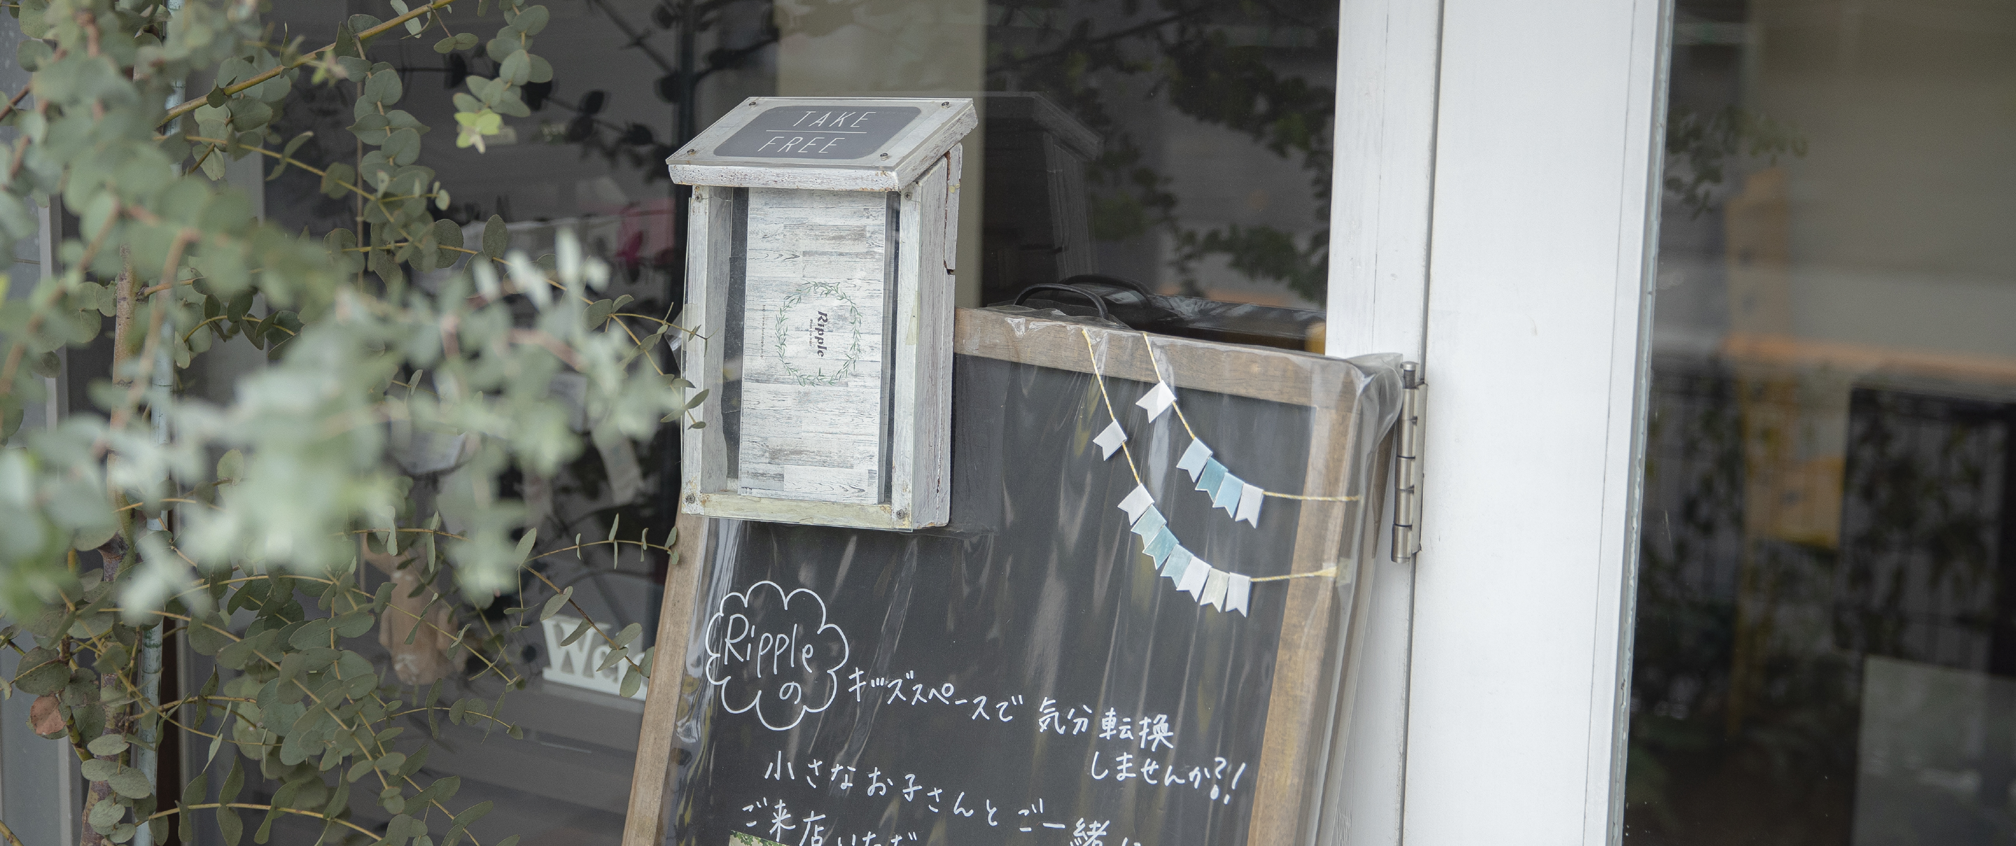 TAKE
FREE
Ripple
Ripple
の
キッズスペースで 気分転換
しませんか?!
小さなお子さんと ご一緒に
ご来店いただ